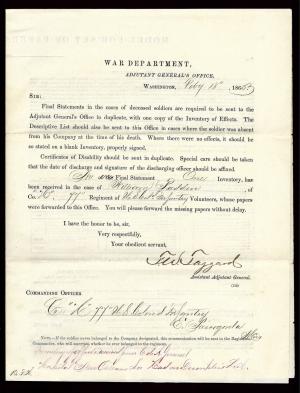 WAR DEPARTMENT,
ADJUTANT GENERAL'S OFFICE,
WASHINGTON, Feby 18th, 1865
SIR:
Final Statements in the cases of deceased soldiers are required to be sent to the
Adjutant General's Office in duplicate, with one copy of the Inventory of Effects. The
Descriptive List should also be sent to this Office in cases where the soldier was absent
from his Company at the time of his death. Where there were no effects, it should be
so stated on a blank Inventory, properly signed.
Certificates of Disability should be sent in duplicate. Special care should be taken
that the date of discharge and signature of the discharging officer should be affixed.
of the Final Statement One Inventory, has
been received in the case of William
Co. "K" 77" Regiment of Infantry Volunteers, whose papers
were forwarded to this Office. You will please forward the missing papers without delay.
I have the honor to be, sir,
Very respectfully,
Your obedient servant,
Taggard
Assistant Adjutant General.
COMMANDING OFFICER
Co "K" 77" U.S. Colored Infantry
E. Pascagoula
Miss
NOTE.—If the soldier never belonged to the Company designated, this communication will be sent to the Regimental
Commander, who will ascertain whether he ever belonged to the regiment.
New Orleans La.